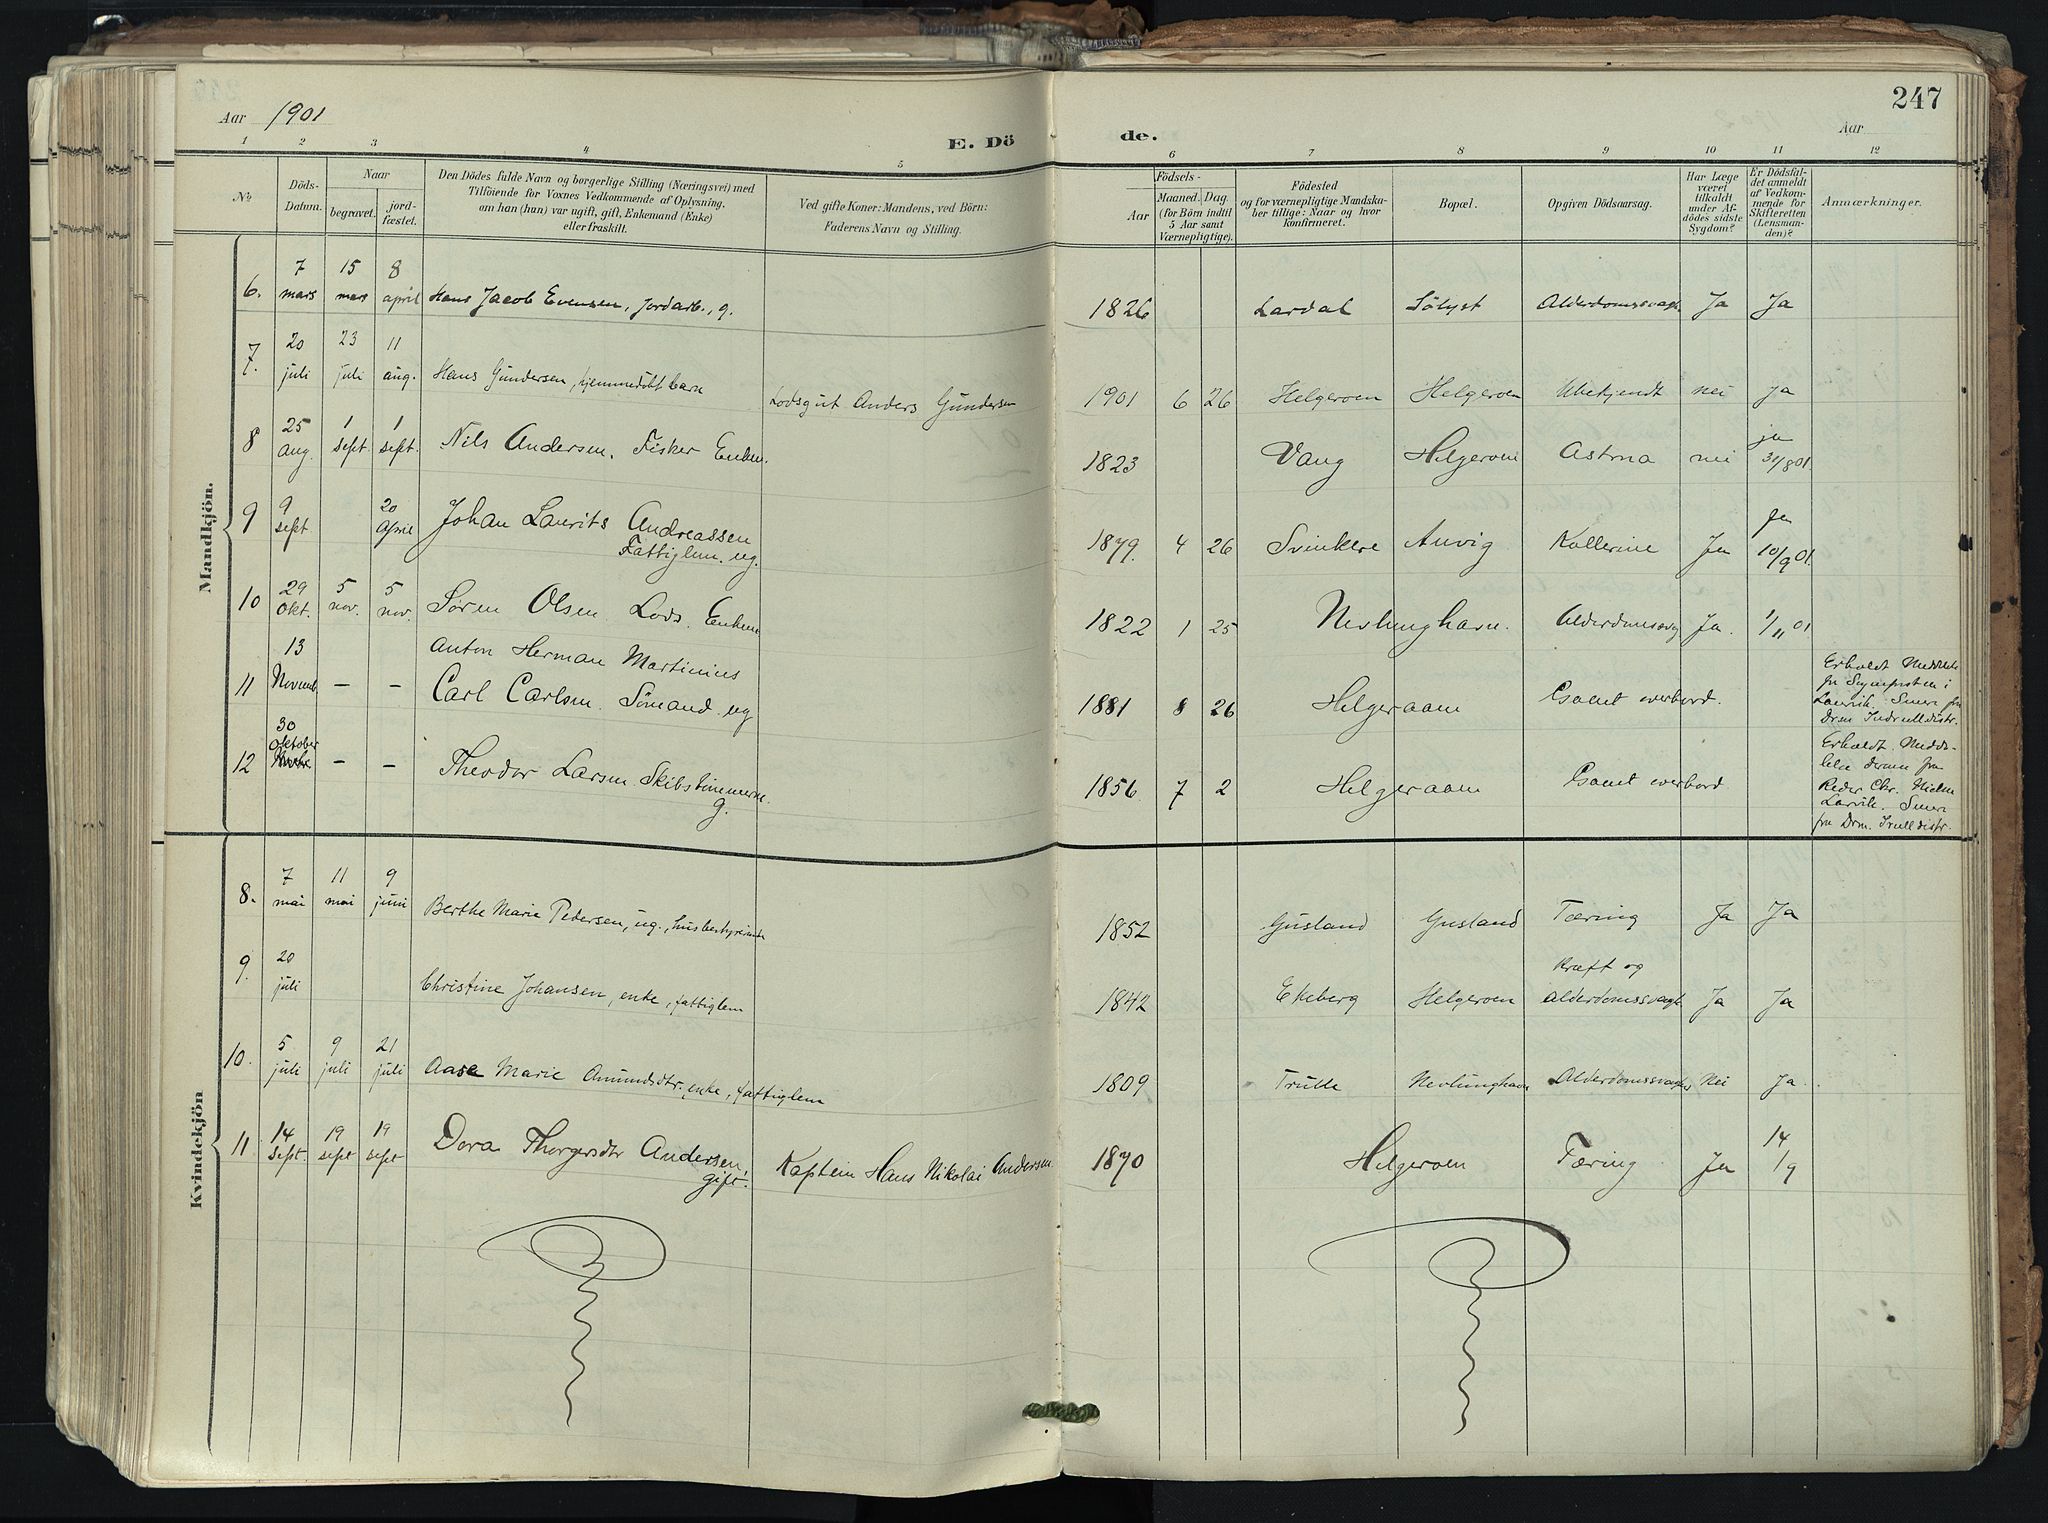 Aar 1901
E. Dö
de.
Aar
247
1 2 3 4 5 6 7 8 9 10 11 12
No
Döds-
Datum.
Naar
begravet.
jord-
fæstet.
Den Dödes fulde Navn og borgerlige Stilling (Næringsvei) med
Tilföiende for Voxnes Vedkommende af Oplysning,
om han (hun) var ugift, gift, Enkemand (Enke)
eller fraskilt.
Ved gifte Koner: Mandens, ved Börn:
Faderens Navn og Stilling.
Födsels-
Aar
Maaned. Dag.
(for Börn indtil
5 Aar samt
Værnepligtige).
Födested
og for værnepligtige Mandska-
ber tillige: Naar og hvor
konfirmeret.
Bopæl.
Opgiven Dödsaarsag.
Har Læge
været
tilkaldt
under Af-
dödes sidste
Sygdom?
Er Dödsfal-
det anmeldt
af Vedkom-
mende for
Skifteretten
(Lensman-
den)?
Anmærkninger.
Mandkjön.
6. 7 mars 15 mars 8 april Hans Jacob Evensen, Jordarb., g. 1826 Lardal Sölyst Alderdomssvagh. Ja Ja
7. 20 juli 23 juli 11 aug. Hans Gundersen, hjemmedöbt barn Lodsgut Anders Gundersen 1901 6 26 Helgeroen Helgeroen Ubekjendt nei Ja
8 25 Aug. 1 sept. 1 sept. Nils Andersen. Fisker Enkem. 1823 Vang Helgeroen Astma nei ja 31/8 01.
9 9 sept. 20 April Johan Laurits Andreassen
Fattiglem. ug. 1879. 4 26 Auvig Ja Ja 10/9 01.
10 29 Okt. 5 nov. 5 nov. Sören Olsen Lods. Enkem 1822 1 25 Nevlunghavn. Ja. 1/11 01
11 13 Novemb. – – Anton Herman Martinius
Carl Carlsen. Sömand ug 1881 8 26 Helgeraaen overbord.
Erholdt
i
Larvik.
12 30 Oktober – – Theodor Larsen. Skibstömmerm.
g. 1856. 7 2 Helgeraaen overbord
Erholdt. Medde-
lelse derom fra
Reder Chr. Nielsen
Larvik.
Kvindekjön
8. 7 mai 11 mai 9 juni Berthe Marie Pedersen, ug., husbestyrerinde 1852 Gusland Gusland Tæring Ja Ja
9. 20 juli Christine Johansen, enke, fattiglem 1842 Ekeberg Helgeroen Kræft og
Alderdomssvagh. Ja Ja
10. 5 juli 9 juli 21 juli Aase Marie Amundsdtr. enke, fattiglem 1809 Trulle Nevlunghavn Alderdomssvaghed Nei Ja.
11 14 sept. 19 sept 19 sept Dora Thorgersdtr Andersen,
gift. Kaptein Hans Nikolai Andersen 1870 Helgeroen Tæring Ja 14/9